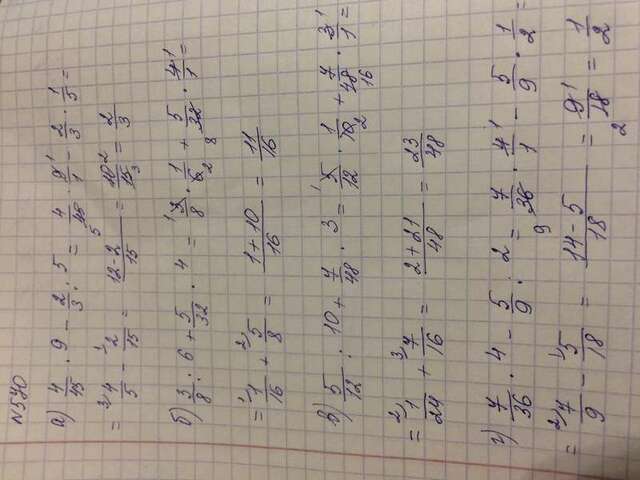 №570
а) 4/45 · 9 − 2/3 : 5 = 4/45 5 · 9 1/1 − 2/3 · 1/5 =
= 3) 4/5 − 1) 2/15 = 12−2/15 = 10 2/15 3 = 2/3
б) 3/8 : 6 + 5/32 · 4 = 1 3/8 · 1/6 2 + 5/32 8 · 4 1/1 =
= 1) 1/16 + 2) 5/8 = 1+10/16 = 11/16
в) 5/12 : 10 + 7/48 · 3 = 1 5/12 · 1/10 2 + 7/48 16 · 3 1/1 =
= 2) 1/24 + 3) 7/16 = 2+21/48 = 23/48
г) 7/36 · 4 − 5/9 : 2 = 7/36 9 · 4 1/1 − 5/9 · 1/2 =
= 2) 7/9 − 1) 5/18 = 14−5/18 = 9 1/18 2 = 1/2